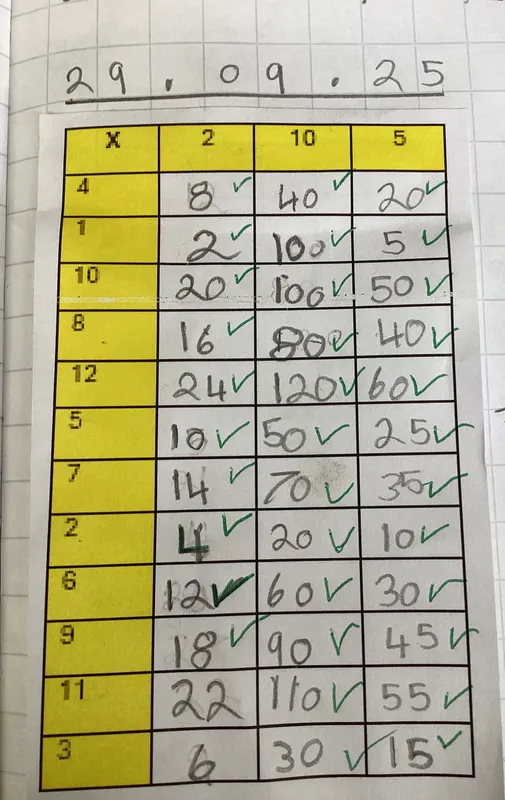 29.09.25
X 2 10 5
4 8 40 20
1 2 100 5
10 20 100 50
8 16 80 40
12 24 120 60
5 10 50 25
7 14 70 35
2 4 20 10
6 12 60 30
9 18 90 45
11 22 110 55
3 6 30 15